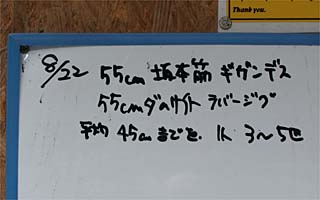 Thank you.
8/22 55cm 坂本筋 ギヴンデス
55cm ダムサイト ラバージグ
平均 45cmまでを. 1人 3〜5匹